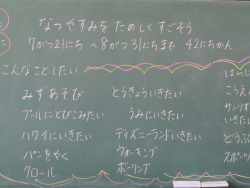 なつやすみを たのしくすごそう
7がつ21にち~8がつ31にちまで 42にちかん
こんなことしたい
みずあそび
プールにとびこみたい
ハワイにいきたい
パンをやく
クロール
とうきょういきたい
うみにいきたい
ディズニーランドいきたい
ウォーキング
ボーリング
こうえん
サンリオ
いきたい
どうぶ
スポーツ